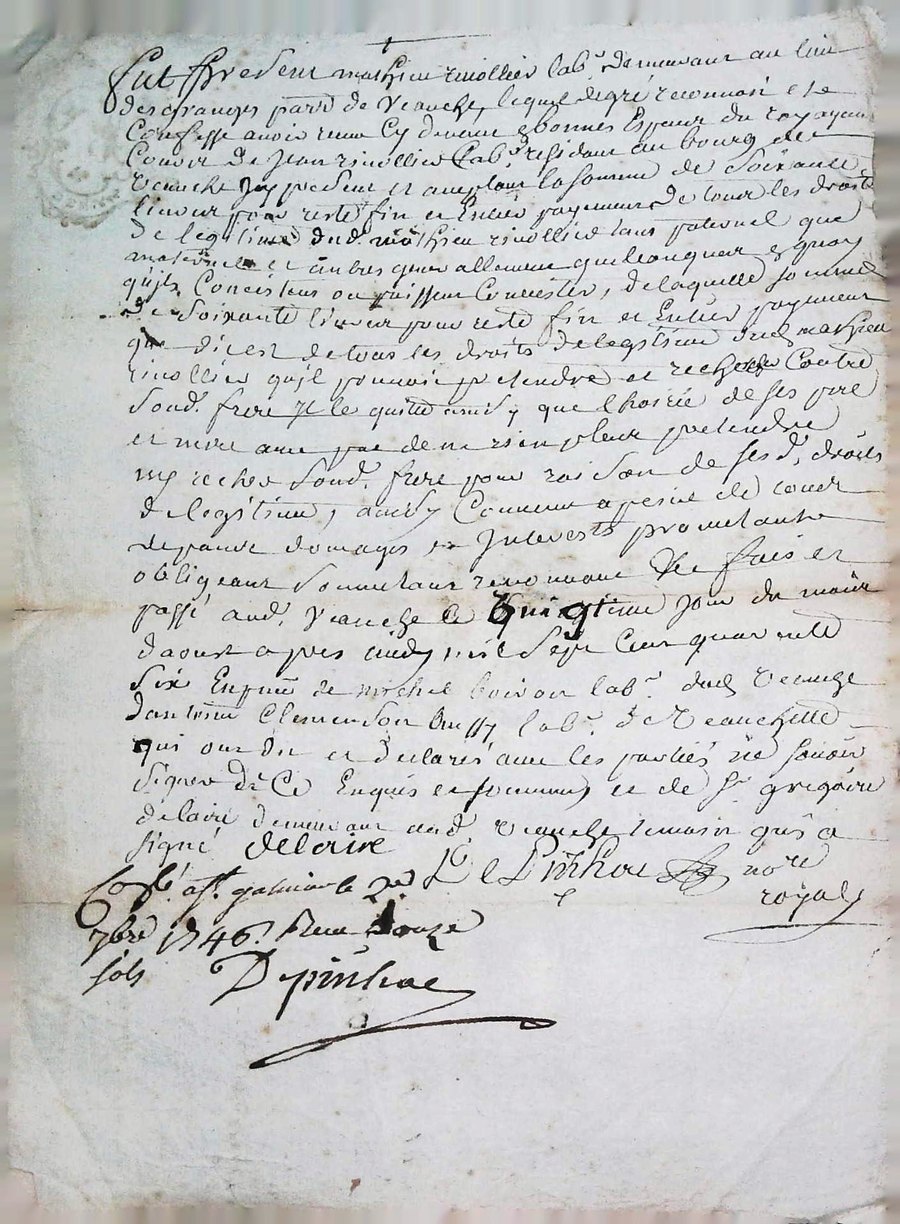 fut present mathieu rinollier lab.r demeurant au lieu
des granges par.se de Veauche, lequel de gré reconnoit et
Confesse avoir receu cy devant & bonnes Especes du royaume
de Jean rinollier lab.r residant au bourg de
Veauche icy present et acceptant la somme de soixante
livres pour reste fin et Entier payement de tous les droits
de legitime dud. mathieu rinollier tant paternel que
maternel et autres generallement quelconques & quoy
qu'ils Concistent ou puissent Concister, de laquelle somme
de soixante livres pour reste fin et Entier payement
que dit est de tous les droits de legitime dud mathieu
rinollier qu'il pouvoit pretendre et rechercher Contre
sond. frere il le quitte ainsy que l'hoirie de ses pere
et mere avec pac de ne rien plus pretendre
ny recher sond. frere pour raison de ses d. droits
de legitime, ainsy Convenu a peine de tous
depans domages et Interests promettant
obligeant soumettant renonceant &c fait et
passé aud. Veauche le huigtieme jour du mois
d'aoust apres midy mil sept cent quarente
six En presence de michel lab.r dud Veauche
d'antoine Clemenson lab.r de Veauchette
qui ont dit et declarés avec les parties ne savoir
signer de Ce Enquis et sommés et de s.r gregoire
delaire demeurant aud Veauche temoin qui a
signé delaire Depinhac no.re
royal
Con.lé a s.t galmier le
7bre 1746. Receu douze
sols Depinhac